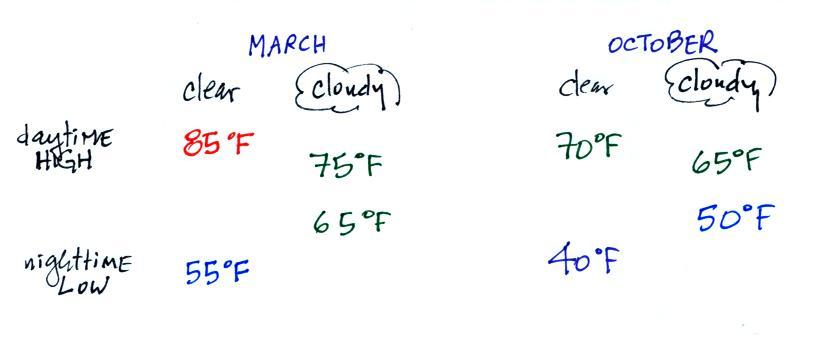 MARCH OCTOBER
clear cloudy clear cloudy
daytime HIGH 85°F 75°F 70°F 65°F
65°F 50°F
nighttime LOW 55°F 40°F